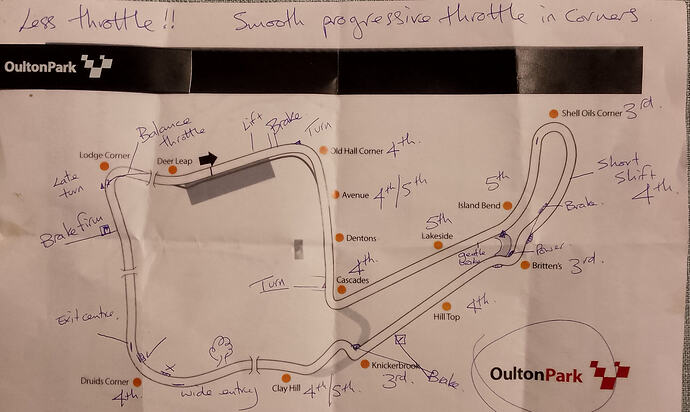 Less throttle!! Smooth progressive throttle in corners.
OultonPark
Shell Oils Corner 3rd.
Balance throttle
Lift
Brake
Turn
Old Hall Corner 4th.
Lodge Corner
Deer Leap
Late turn
Short shift 4th.
Avenue 4th/5th
5th
Island Bend
Brake.
Brake firm
Dentons
5th
Lakeside
Power.
gentle brake
Britten's 3rd.
4th.
Cascades
Turn
Hill Top 4th.
Exit centre.
Knickerbrook 3rd.
Brake.
OultonPark
Druids Corner 4th.
wide entry
Clay Hill 4th/5th